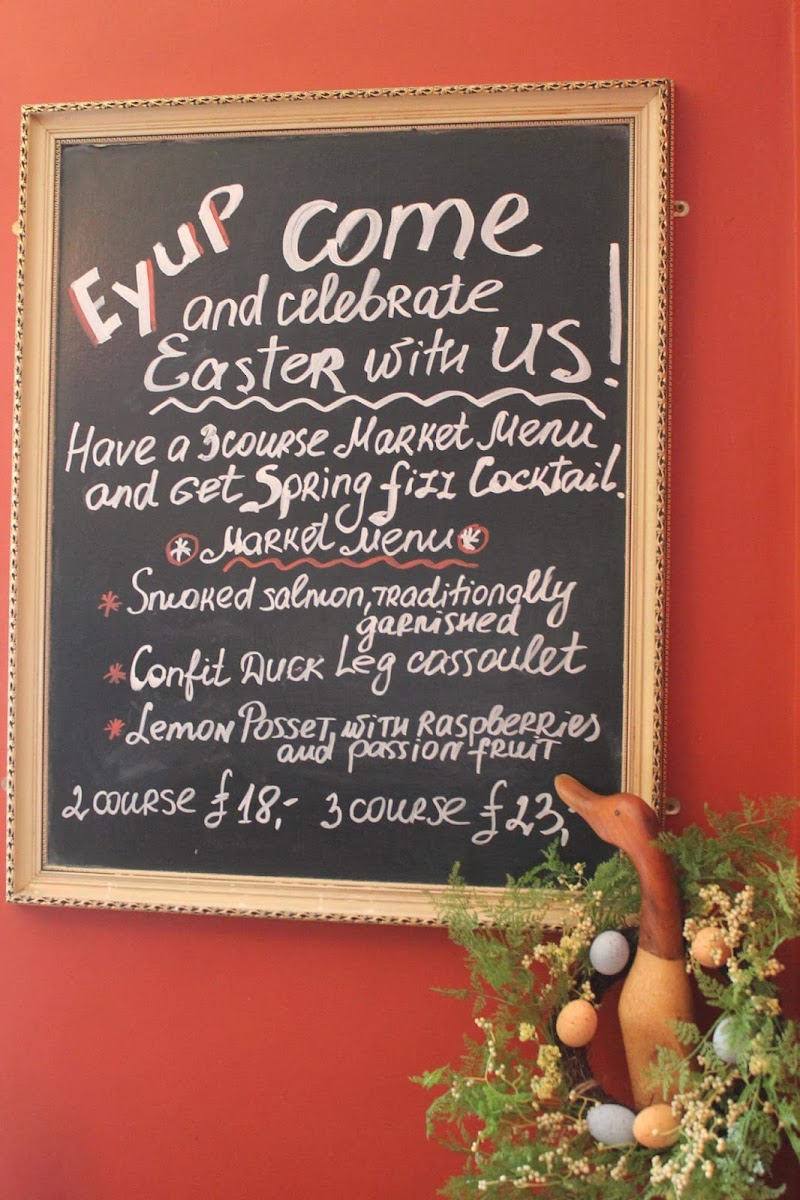 Eyup come
and celebrate
Easter with US!
Have a 3 course Market Menu
and get Spring fizz Cocktail.
* Market Menu *
* Smoked salmon, traditionally
garnished
* Confit Duck Leg cassoulet
* Lemon Posset with Raspberries
and passion fruit
2 course £18,- 3 course £23,-